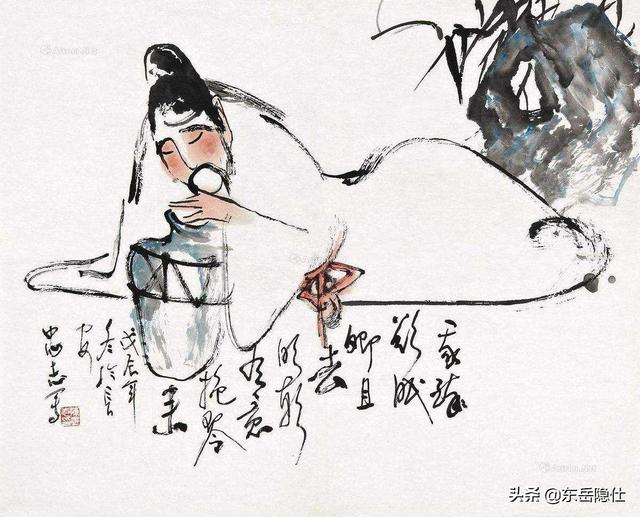 我醉
欲眠
卿且
去
明朝
有意
抱琴
来
戊辰年
冬於長
安
忠志写
头条 @东岳隐仕